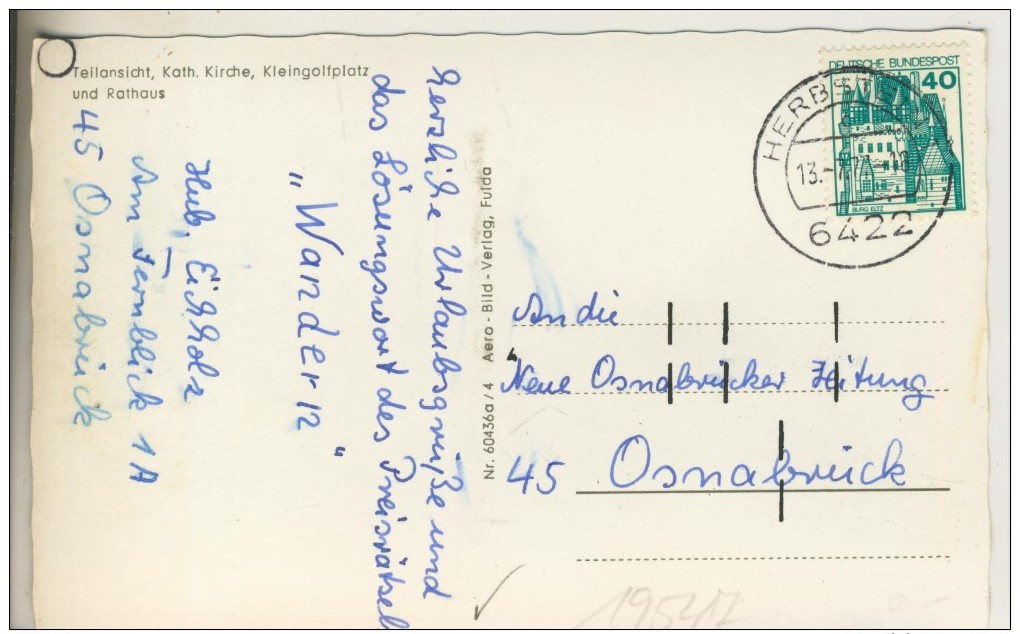 Teilansicht, Kath. Kirche, Kleingolfplatz
und Rathaus
Herzliche Urlaubsgrüße und
das Lösungswort des Preisrätsel
"Wandern"
Hub. Eichholz
Am Fernblick 1A
45 Osnabrück
Nr. 60436a/4 Aero-Bild-Verlag, Fulda
DEUTSCHE BUNDESPOST
40
BURG ELTZ
13.-7.77.-18
6422
An die
"Neue Osnabrücker Zeitung
45 Osnabrück
19517